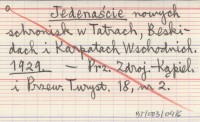 Jedenaście nowych
schronisk w Tatrach, Beski-
dach i Karpatach Wschodnich.
1929. — Prz. Zdroj.-Kąpiel.
i Przew. Turyst. 18, nr 2.